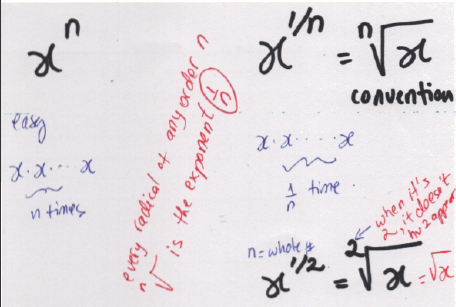 xⁿ
easy
x·x···x
n times
every radical of any order n
ⁿ√ is the exponent 1/n
x^1/n = ⁿ√x
convention
x·x····x
1/n time
n = whole #
x^1/2 = ²√x = √x
when it's
2, it doesn't